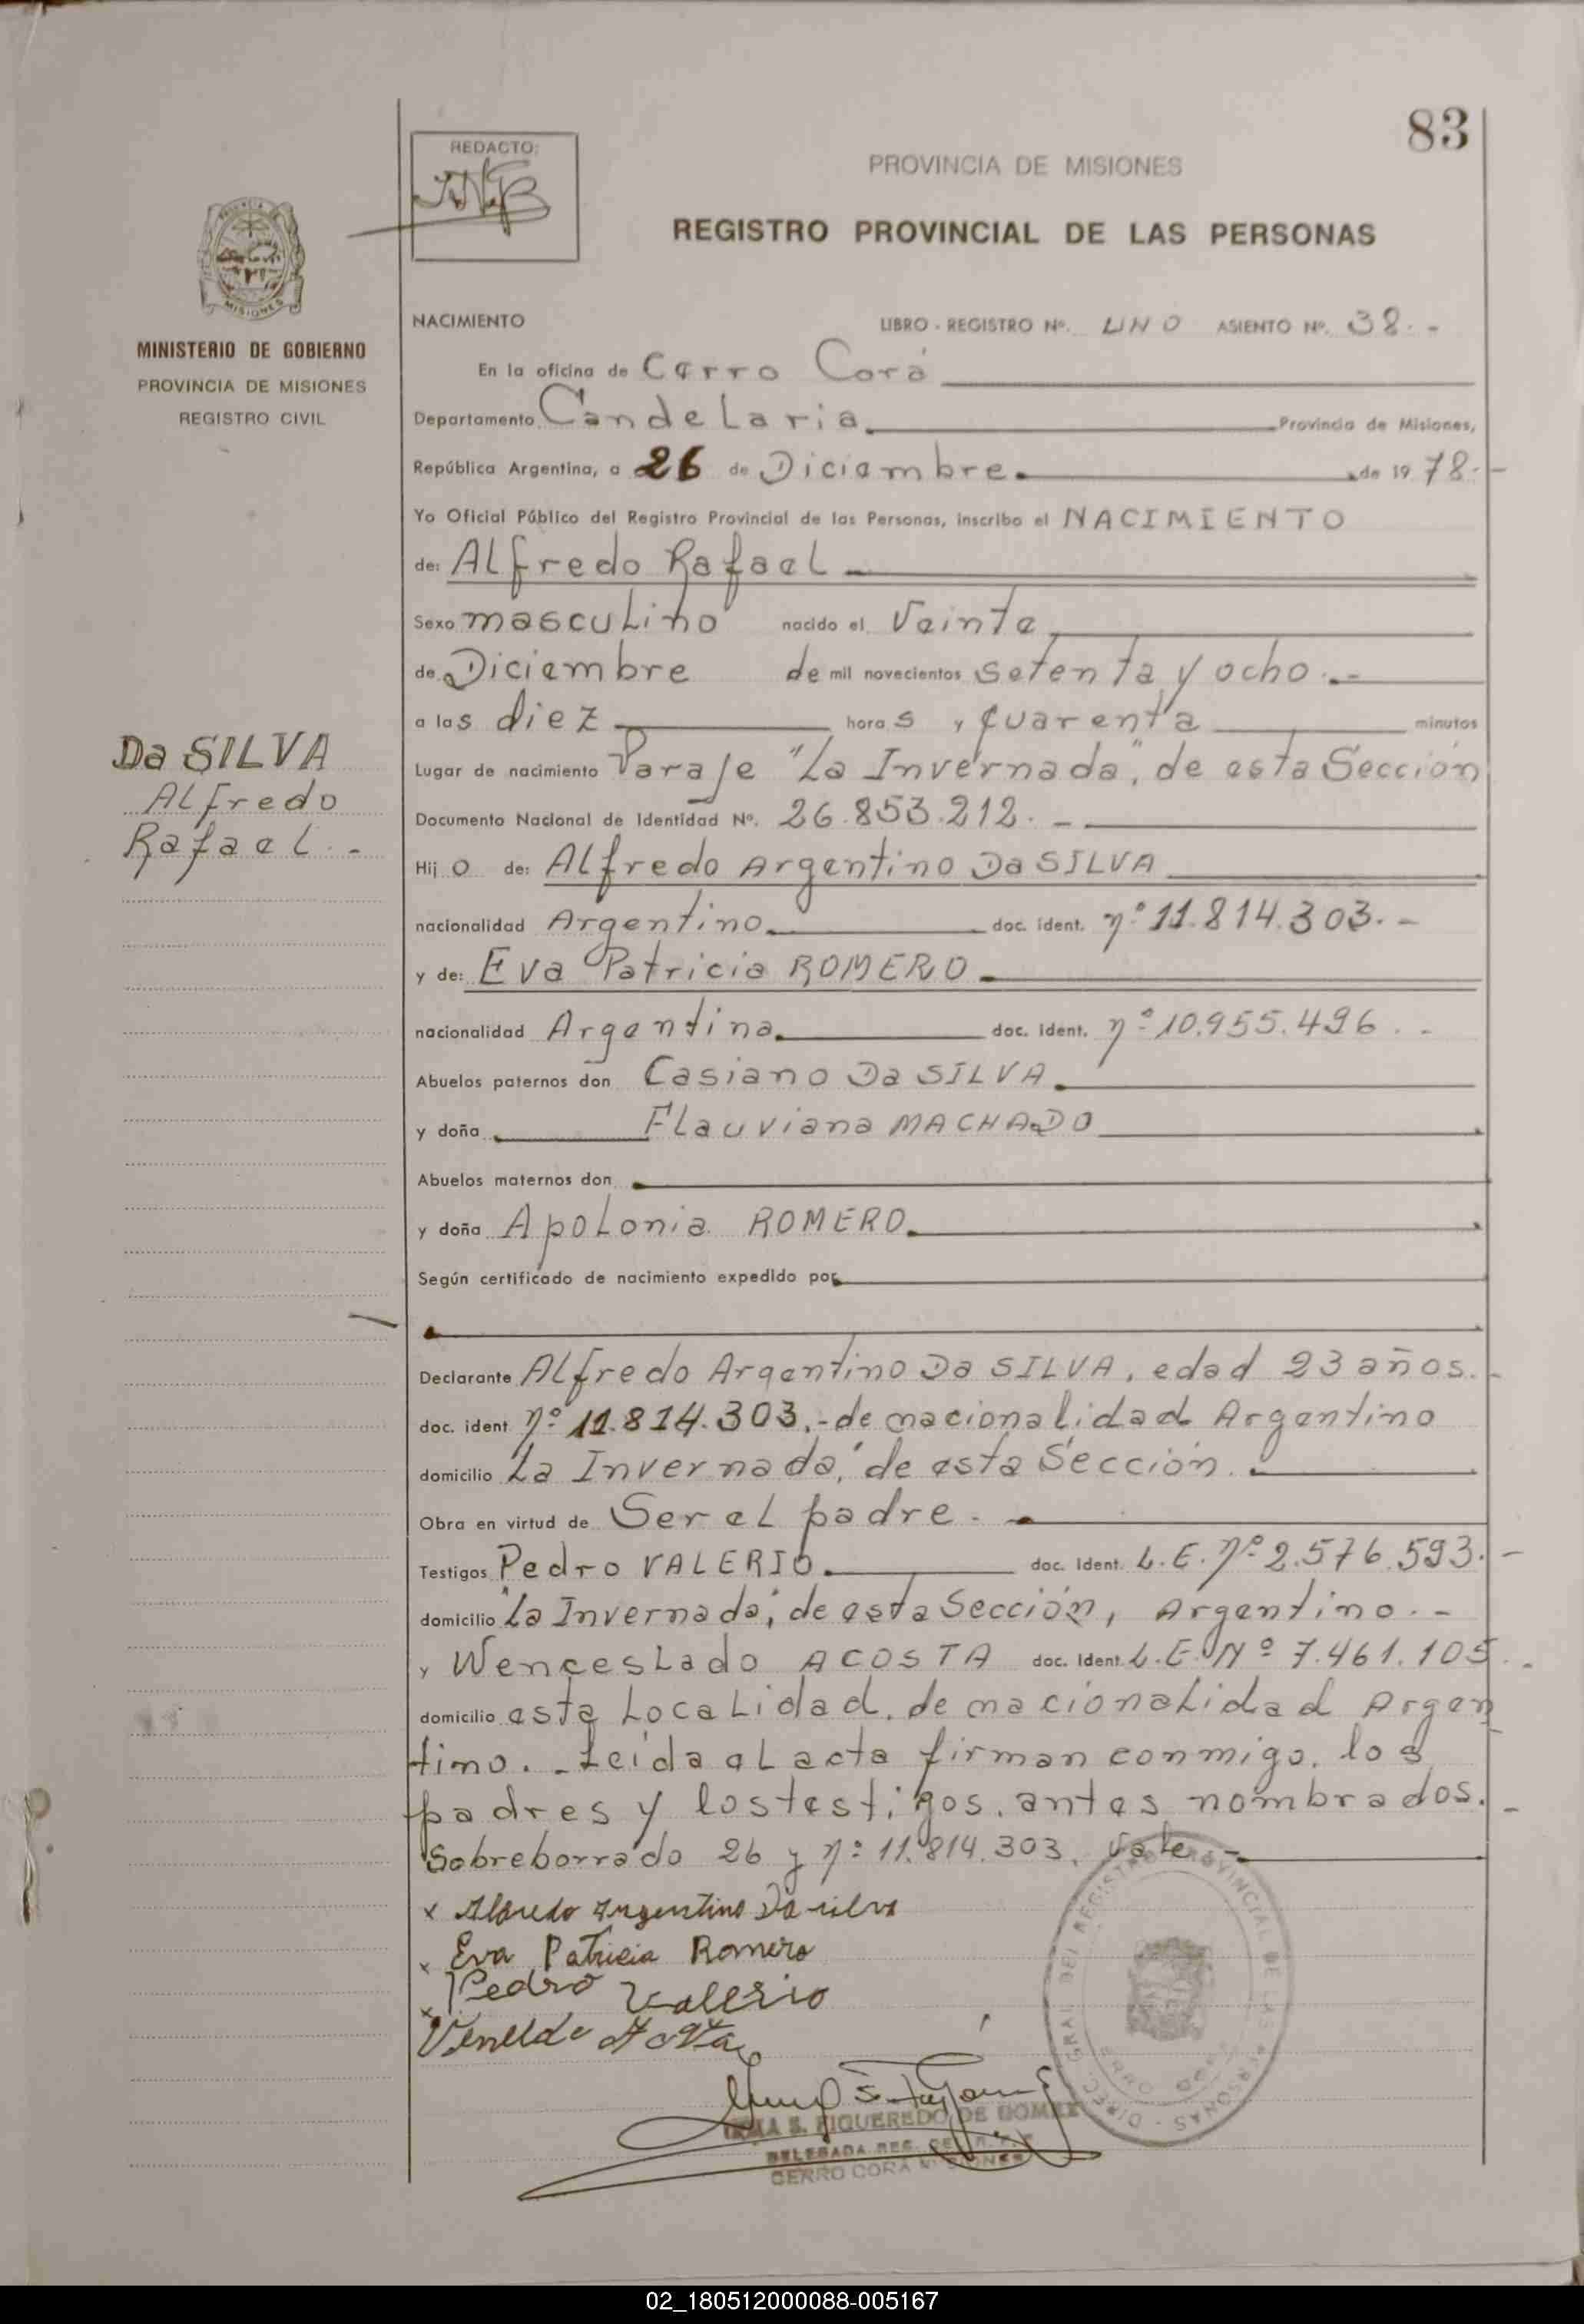 83
REDACTO:
PROVINCIA DE MISIONES
REGISTRO PROVINCIAL DE LAS PERSONAS
MISIONES
MINISTERIO DE GOBIERNO
PROVINCIA DE MISIONES
REGISTRO CIVIL
NACIMIENTO LIBRO - REGISTRO Nº. UNO ASIENTO Nº. 38.-
En la oficina de Cerro Corá
Departamento Candelaria Provincia de Misiones,
República Argentina, a 26 de Diciembre de 1978.-
Yo Oficial Público del Registro Provincial de las Personas, inscribo el NACIMIENTO
de: Alfredo Rafael
Sexo masculino nacido el Veinte
de Diciembre de mil novecientos setenta y ocho.-
a las diez horas y cuarenta minutos
Lugar de nacimiento Paraje "La Invernada", de esta Sección
Documento Nacional de Identidad Nº. 26.853.212.-
Hijo de: Alfredo Argentino Da SILVA
nacionalidad Argentino doc. ident. nº 11.814.303.-
y de: Eva Patricia ROMERO
nacionalidad Argentina doc. ident. nº 10.955.496.-
Abuelos paternos don Casiano Da SILVA
y doña Flauviana MACHADO
Abuelos maternos don
y doña Apolonia ROMERO
Según certificado de nacimiento expedido por
Declarante Alfredo Argentino Da SILVA, edad 23 años.-
doc. ident nº 11.814.303.-de nacionalidad Argentino
domicilio La Invernada," de esta Sección.
Obra en virtud de Ser el padre.-
Testigos Pedro VALERIO doc. Ident. L.E. nº 2.576.593.-
domicilio "La Invernada", de esta Sección, Argentino.-
y Wenceslado ACOSTA doc. Ident. L.E. Nº 7.461.105.-
domicilio esta Localidad, de nacionalidad Argen
tino.-Leída el acta firman conmigo, los
padres y los testigos, antes nombrados.-
Sobreborrado 26 y nº 11.814.303, Vale-
x Alfredo Argentino Da silva
x Eva Patricia Romero
x Pedro Valerio
IRMA S. FIGUEREDO DE GOMEZ
DELEGADA REG.
CERRO CORA MISIONES
DIREC. GRAL. DEL REGISTRO PROVINCIAL DE LAS PERSONAS
CERRO CORA
Da SILVA
Alfredo
Rafael.-
02_180512000088-005167